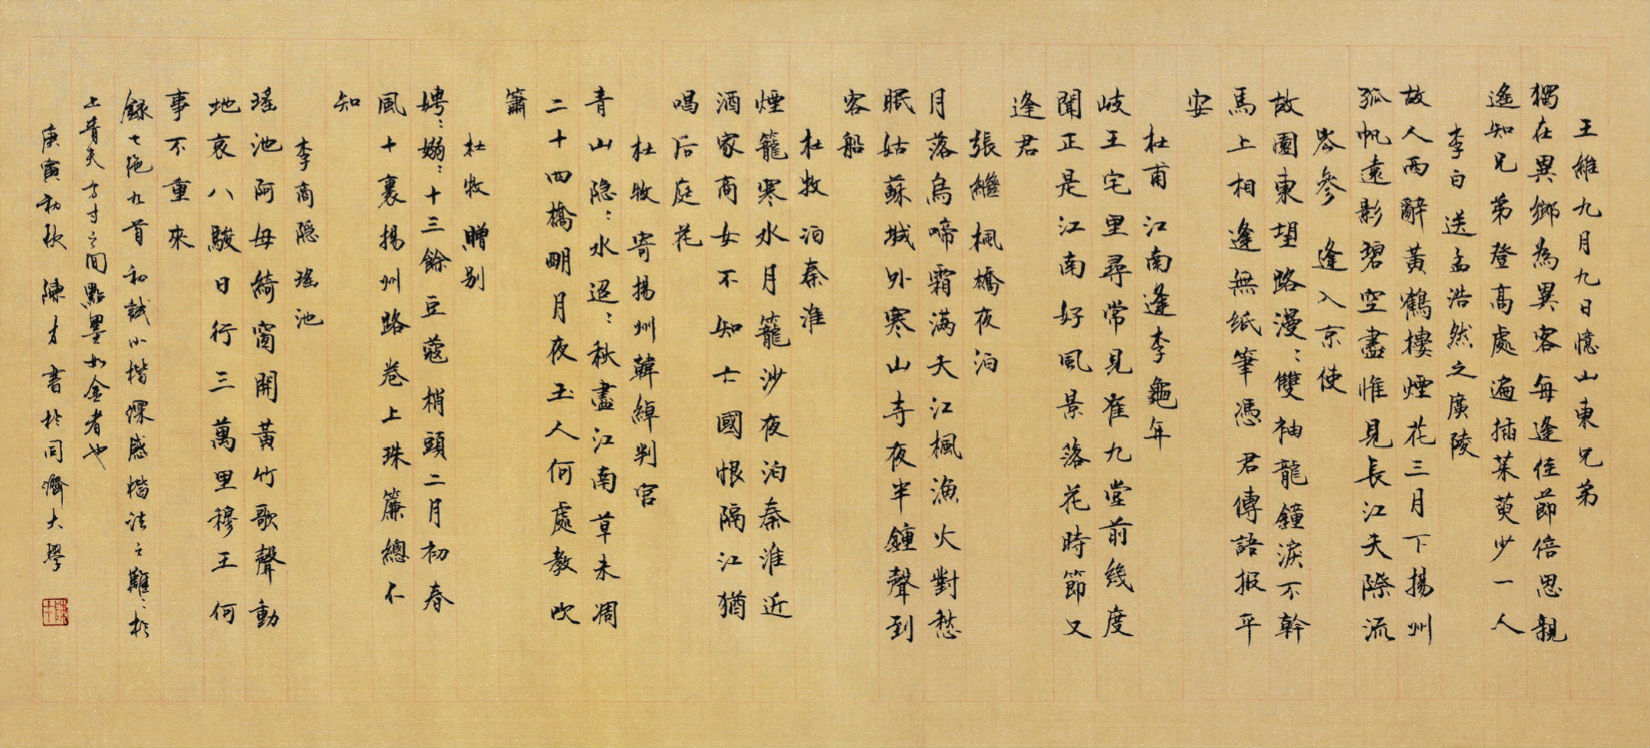 王維九月九日憶山東兄弟
獨在異鄉為異客每逢佳節倍思親
遙知兄弟登高處遍插茱萸少一人
李白送孟浩然之廣陵
故人西辭黃鶴樓煙花三月下揚州
孤帆遠影碧空盡惟見長江天際流
岑參逢入京使
故園東望路漫〻雙袖龍鐘淚不幹
馬上相逢無紙筆憑君傳語报平
安
杜甫江南逢李龜年
岐王宅里尋常見崔九堂前幾度
聞正是江南好風景落花時節又
逢君
張繼楓橋夜泊
月落烏啼霜满天江楓漁火對愁
眠姑蘇城外寒山寺夜半鐘聲到
客船
杜牧泊秦淮
煙籠寒水月籠沙夜泊秦淮近
酒家商女不知亡國恨隔江猶
唱后庭花
杜牧寄揚州韓綽判官
青山隐〻水迢〻秋盡江南草未凋
二十四橋明月夜玉人何處教吹
簫
杜牧贈别
娉〻嫋〻十三餘豆蔻梢頭二月初春
風十裏揚州路卷上珠簾總不
知
李商隐瑤池
瑤池阿母綺窗開黃竹歌聲動
地哀八駿日行三萬里穆王何
事不重來
錄七絕九首初試小楷深感楷法之難〻於
上青天方寸之間點墨如金者也
庚寅初秋陳才書於同濟大學